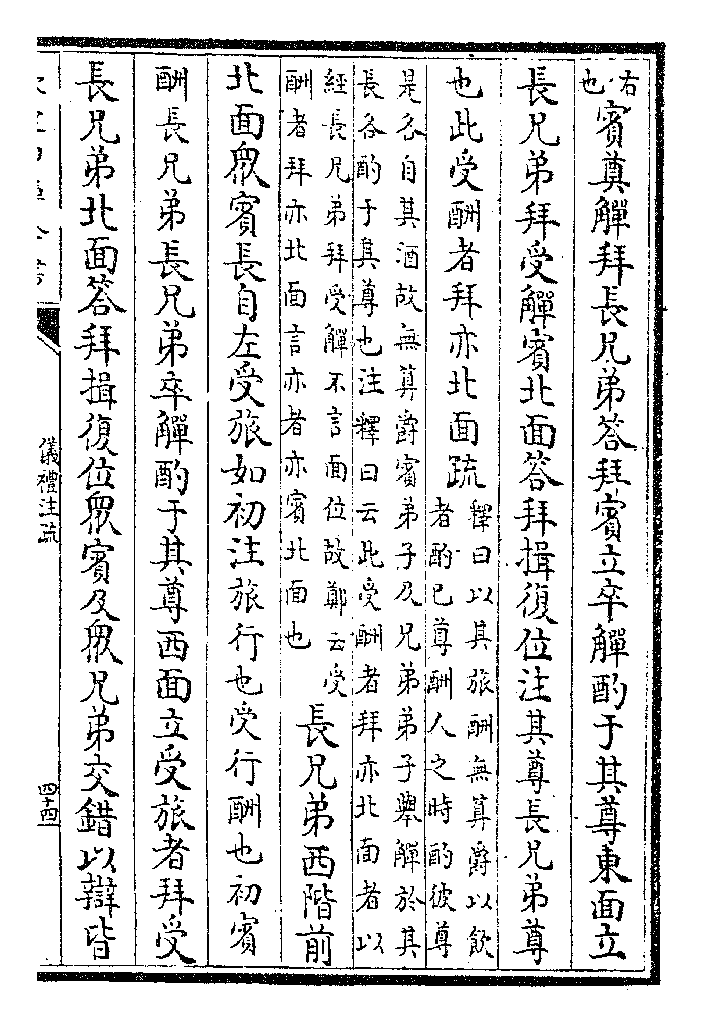 右
也
賓奠觶拜長兄弟答拜賓立卒觶酌于其尊東面立
長兄弟拜受觶賓北面答拜揖復位注其尊長兄弟尊
也此受酬者拜亦北面疏
釋曰以其旅酬無算爵以飲
者酌已尊酬人之時酌彼尊
是各自其酒故無算爵賓弟子及兄弟弟子舉觶於其
長各酌于其尊也注釋曰云此受酬者拜亦北面者以
經長兄弟拜受觶不言面位故鄭云受
酬者拜亦北面言亦者亦賓北面也
長兄弟西階前
北面眾賓長自左受旅如初注旅行也受行酬也初賓
酬長兄弟長兄弟卒觶酌于其尊西面立受旅者拜受
長兄弟北面答拜揖復位眾賓及眾兄弟交錯以辯皆
儀禮注疏
四十四